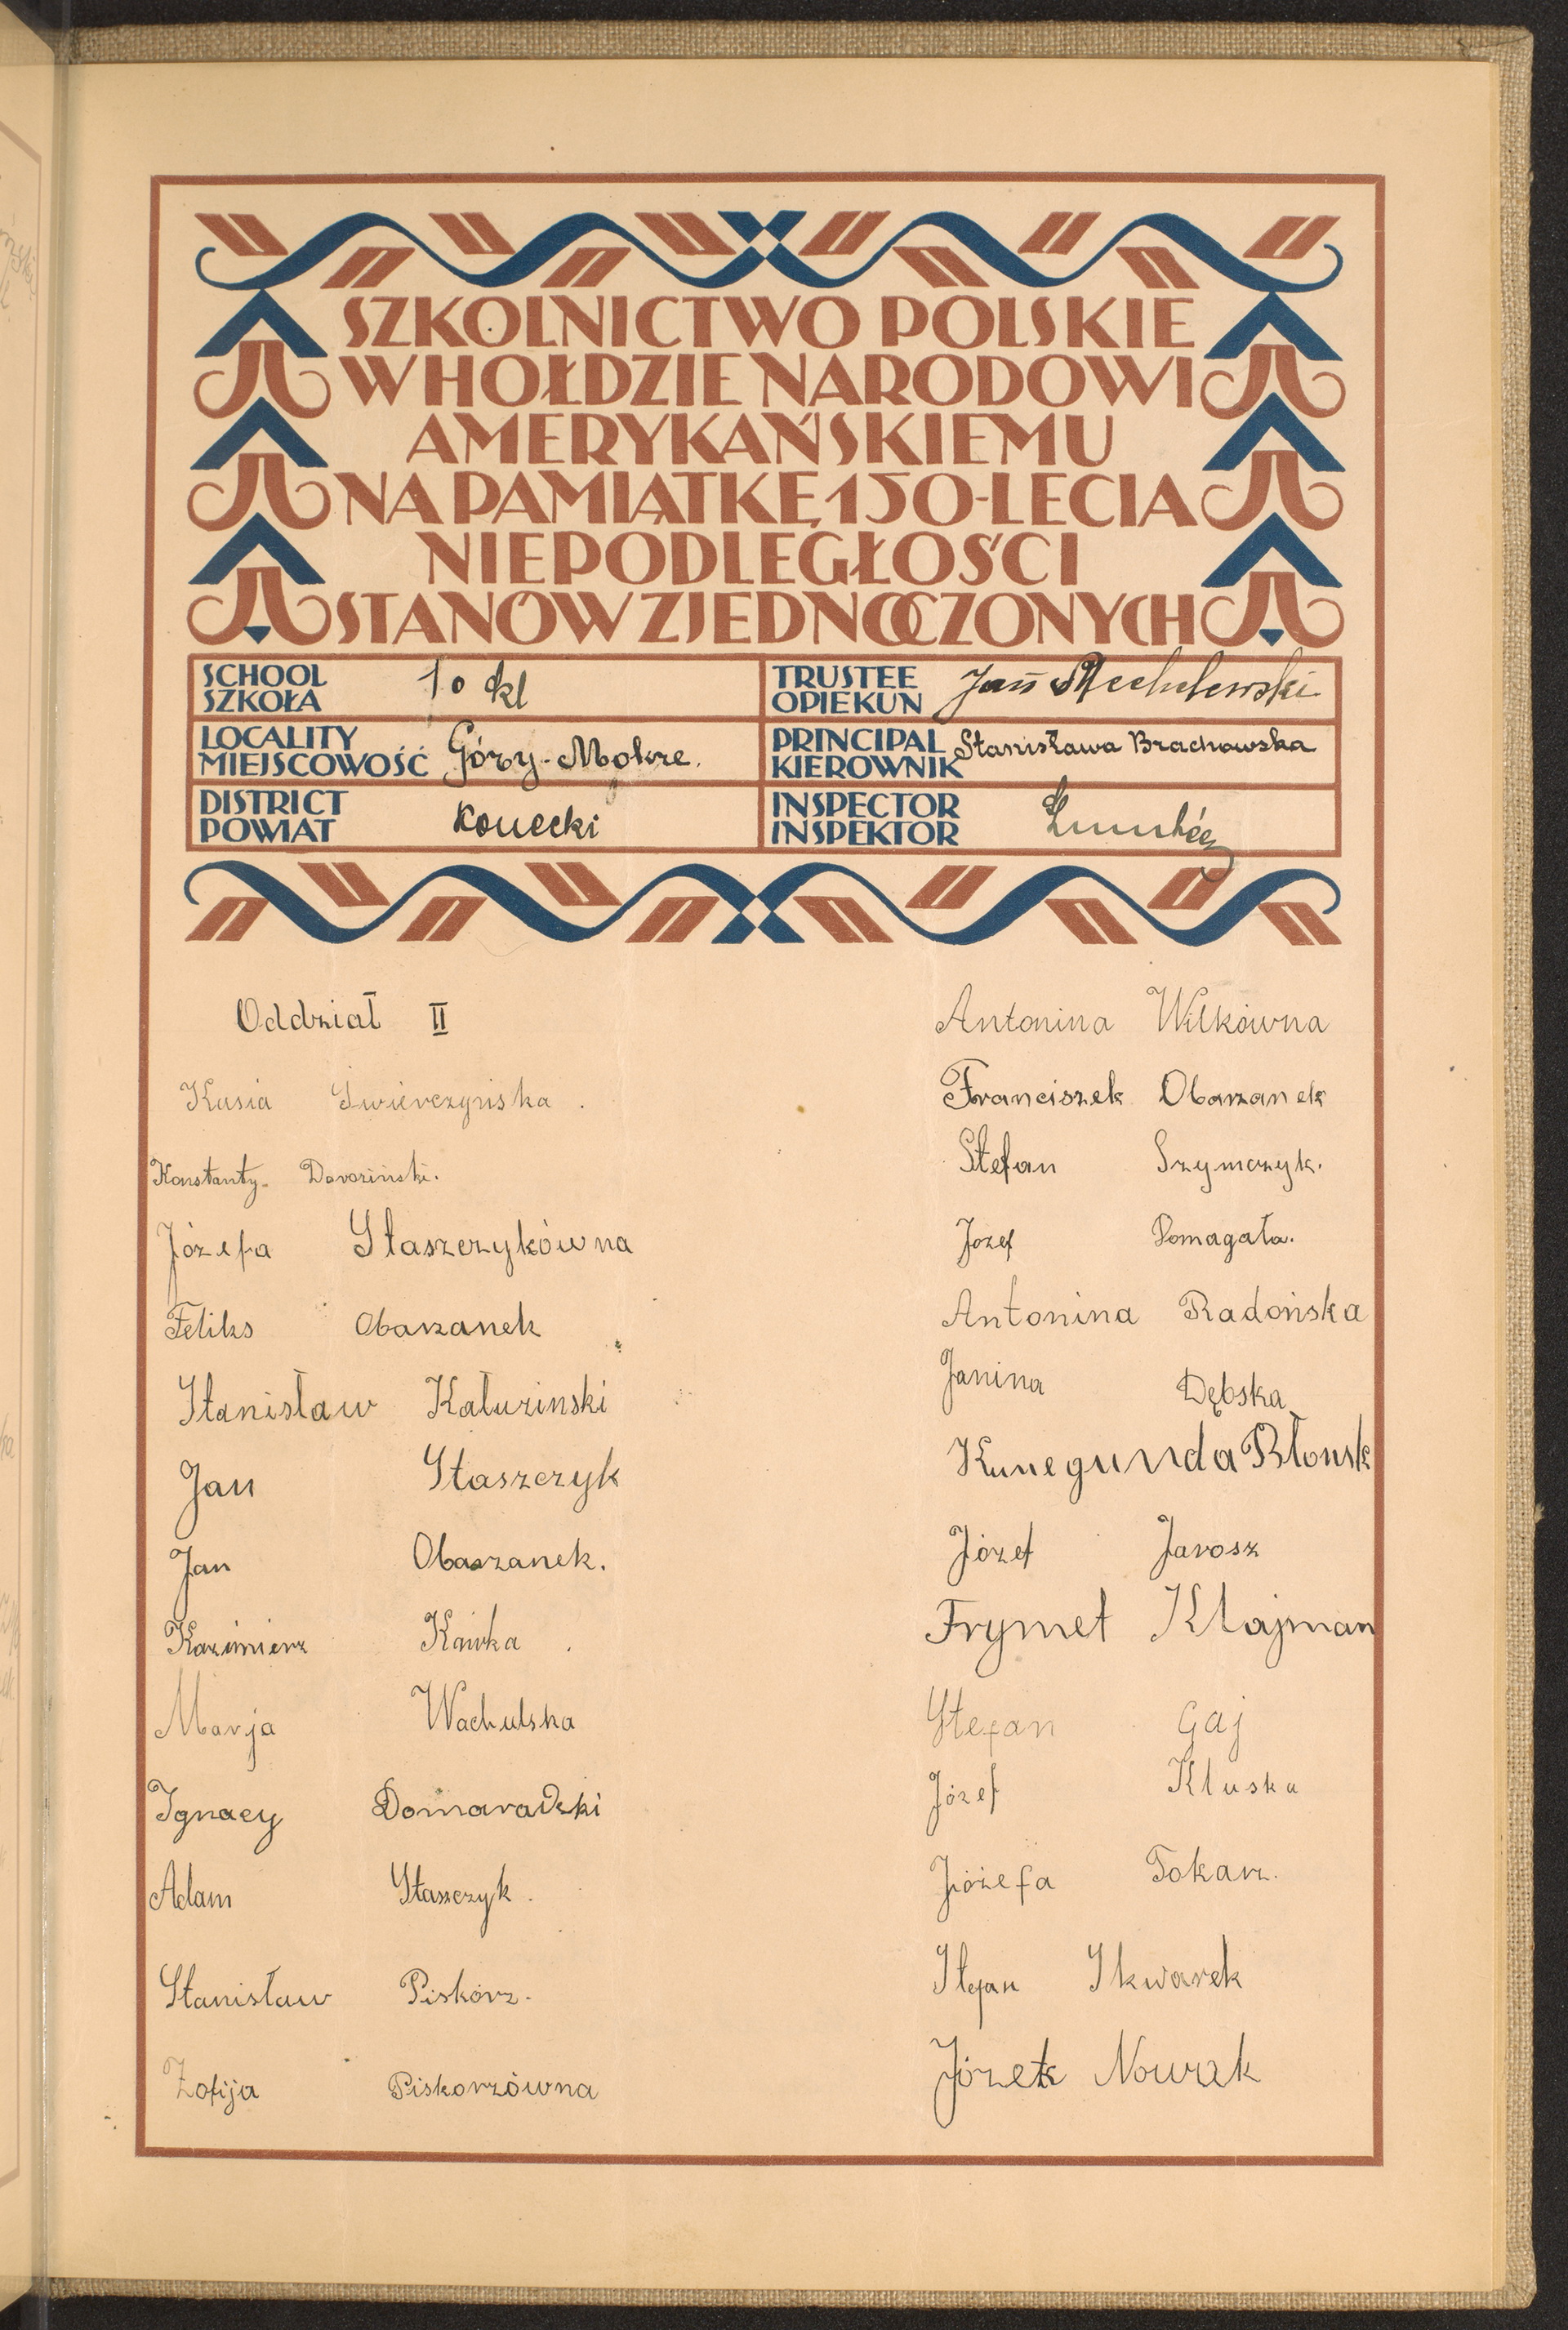 SZKOLNICTWO POLSKIE
W HOŁDZIE NARODOWI
AMERYKAŃSKIEMU
NA PAMIĄTKĘ 150-LECIA
NIEPODLEGŁOŚCI
STANÓW ZJEDNOCZONYCH
SCHOOL
SZKOŁA
10 kl
TRUSTEE
OPIEKUN
Jan
LOCALITY
MIEJSCOWOŚĆ
Góry-Mokre.
PRINCIPAL
KIEROWNIK
Stanisława Brachowska
DISTRICT
POWIAT
Konecki
INSPECTOR
INSPEKTOR
Oddział II
Kusia Świerczyńska.
Konstanty. Dovoziński.
Józefa Staszczykówna
Feliks Obarzanek
Stanisław Kałuzinski
Jan Staszczyk
Jan Obarzanek.
Kazimierz Kawka.
Marja Wachulska
Ignacy Domaradzki
Adam Staszczyk.
Stanisław Piskorz.
Zofija Piskorzówna
Antonina Wilkówna
Franciszek Obarzanek
Stefan Szymczyk.
Józef Domagała.
Antonina Radońska
Janina Dębska
Kunegunda Błonsk
Józef Jarosz
Frymet Klajman
Stefan Gaj
Józef Kluska
Józefa Tokarz.
Stefan Skwarek
Józek Nowak